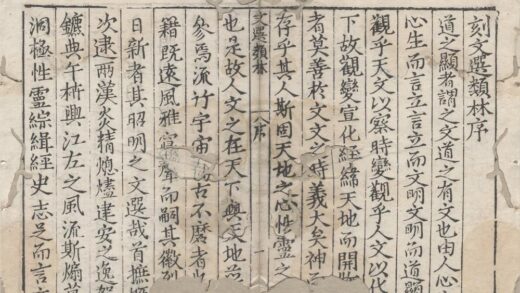 刻文選類林序
道之顯者謂之文道之有文也由人心
心生而言立言立而文明文明而道顯
觀乎天文以察時變觀乎人文以化
下故觀變宣化經緯天地而開
者莫善於文文之時義大矣神
存乎其人斯固天地之心性靈之
文選類林 序 一
也是故人文之在天下與天地
參焉流竹宇宙古不磨者
籍既遠風雅聲而嗣其徽
日新者其昭明之文選哉首摭
次逮兩漢炎精熄燼建安之逸
鑣典午析興江左之風流斯煽
洞極性靈綜緝經史志足而言